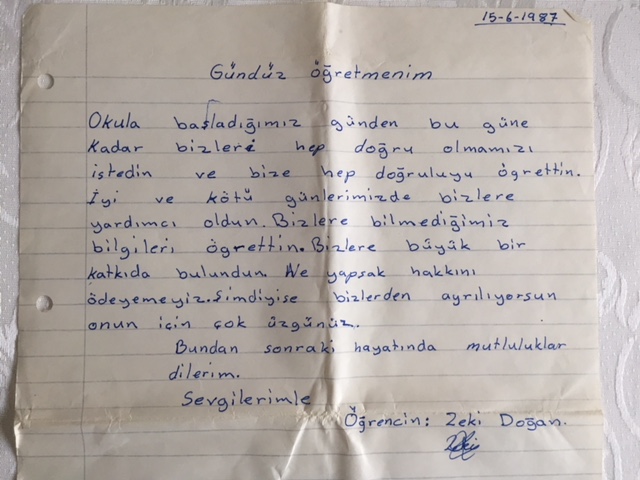 15-6-1987
Gündüz öğretmenim
Okula başladığımız günden bu güne
Kadar bizleri hep doğru olmamızı
istedin ve bize hep doğruluyu öğrettin.
İyi ve kötü günlerimizde bizlere
yardımcı oldun. Bizlere bilmediğimiz
bilgileri ögrettin. Bizlere büyük bir
katkıda bulundun. Ne yapsak hakkını
ödeyemeyiz. Simdiyise bizlerden ayrılıyorsun
onun için çok üzgünüz.
Bundan sonraki hayatında mutluluklar
dilerim.
Sevgilerimle
Öğrencin: Zeki Doğan.
Zeki